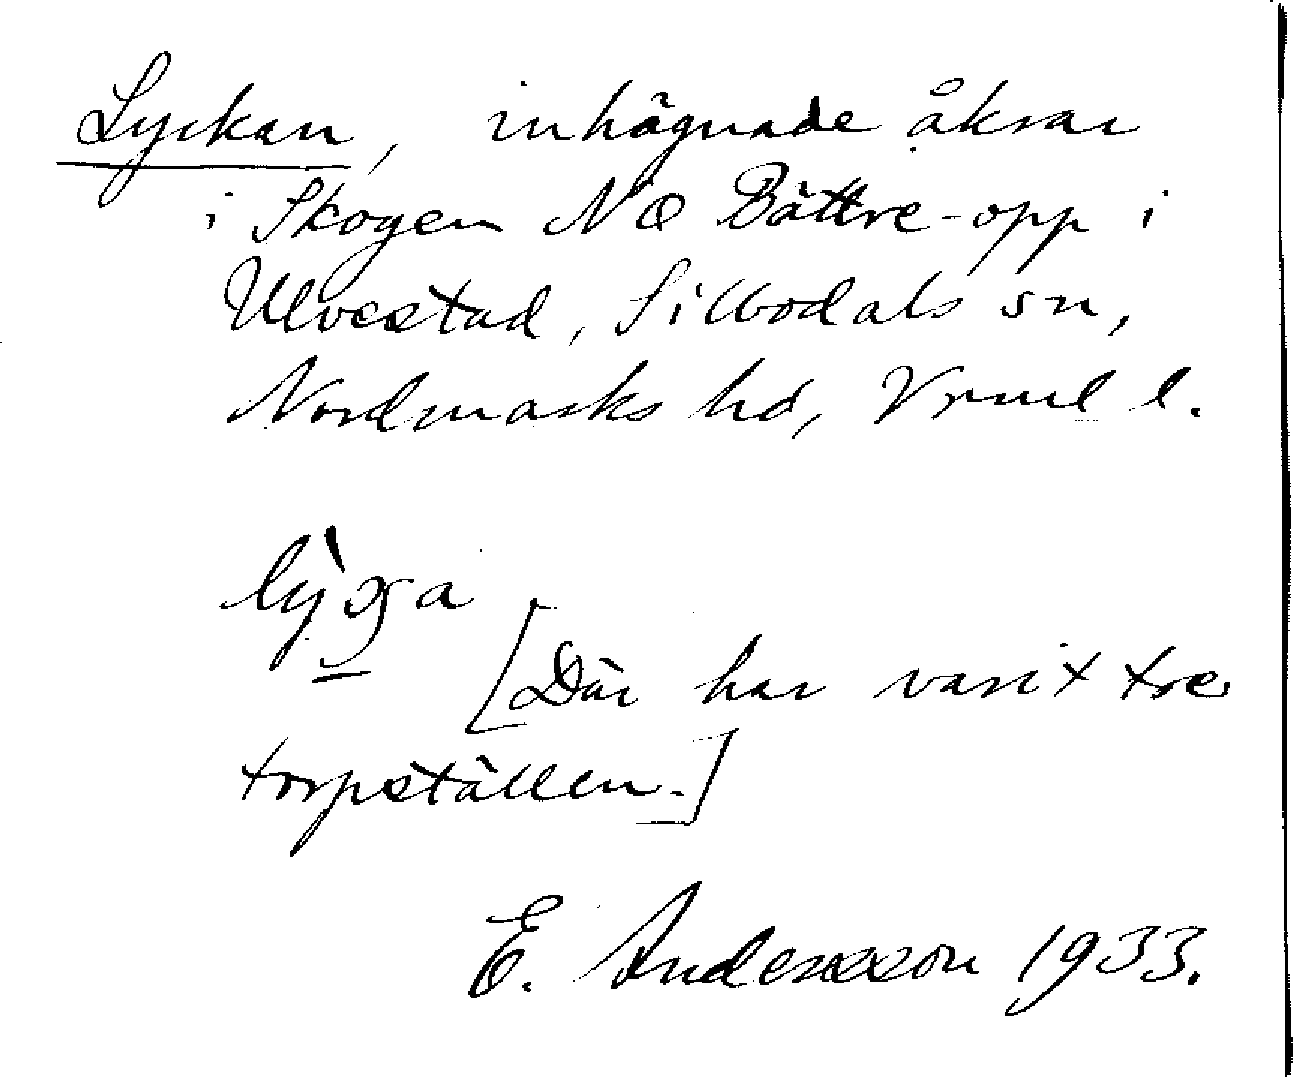 Lyckan, inhägnade åkrar
i Skogen NO Bättre-opp i
Ulvestad, Sillbodals sn,
Nordmarks hd, Vrml l.
[Där har varit tre
torpställen.]
E. Andersson 1933.